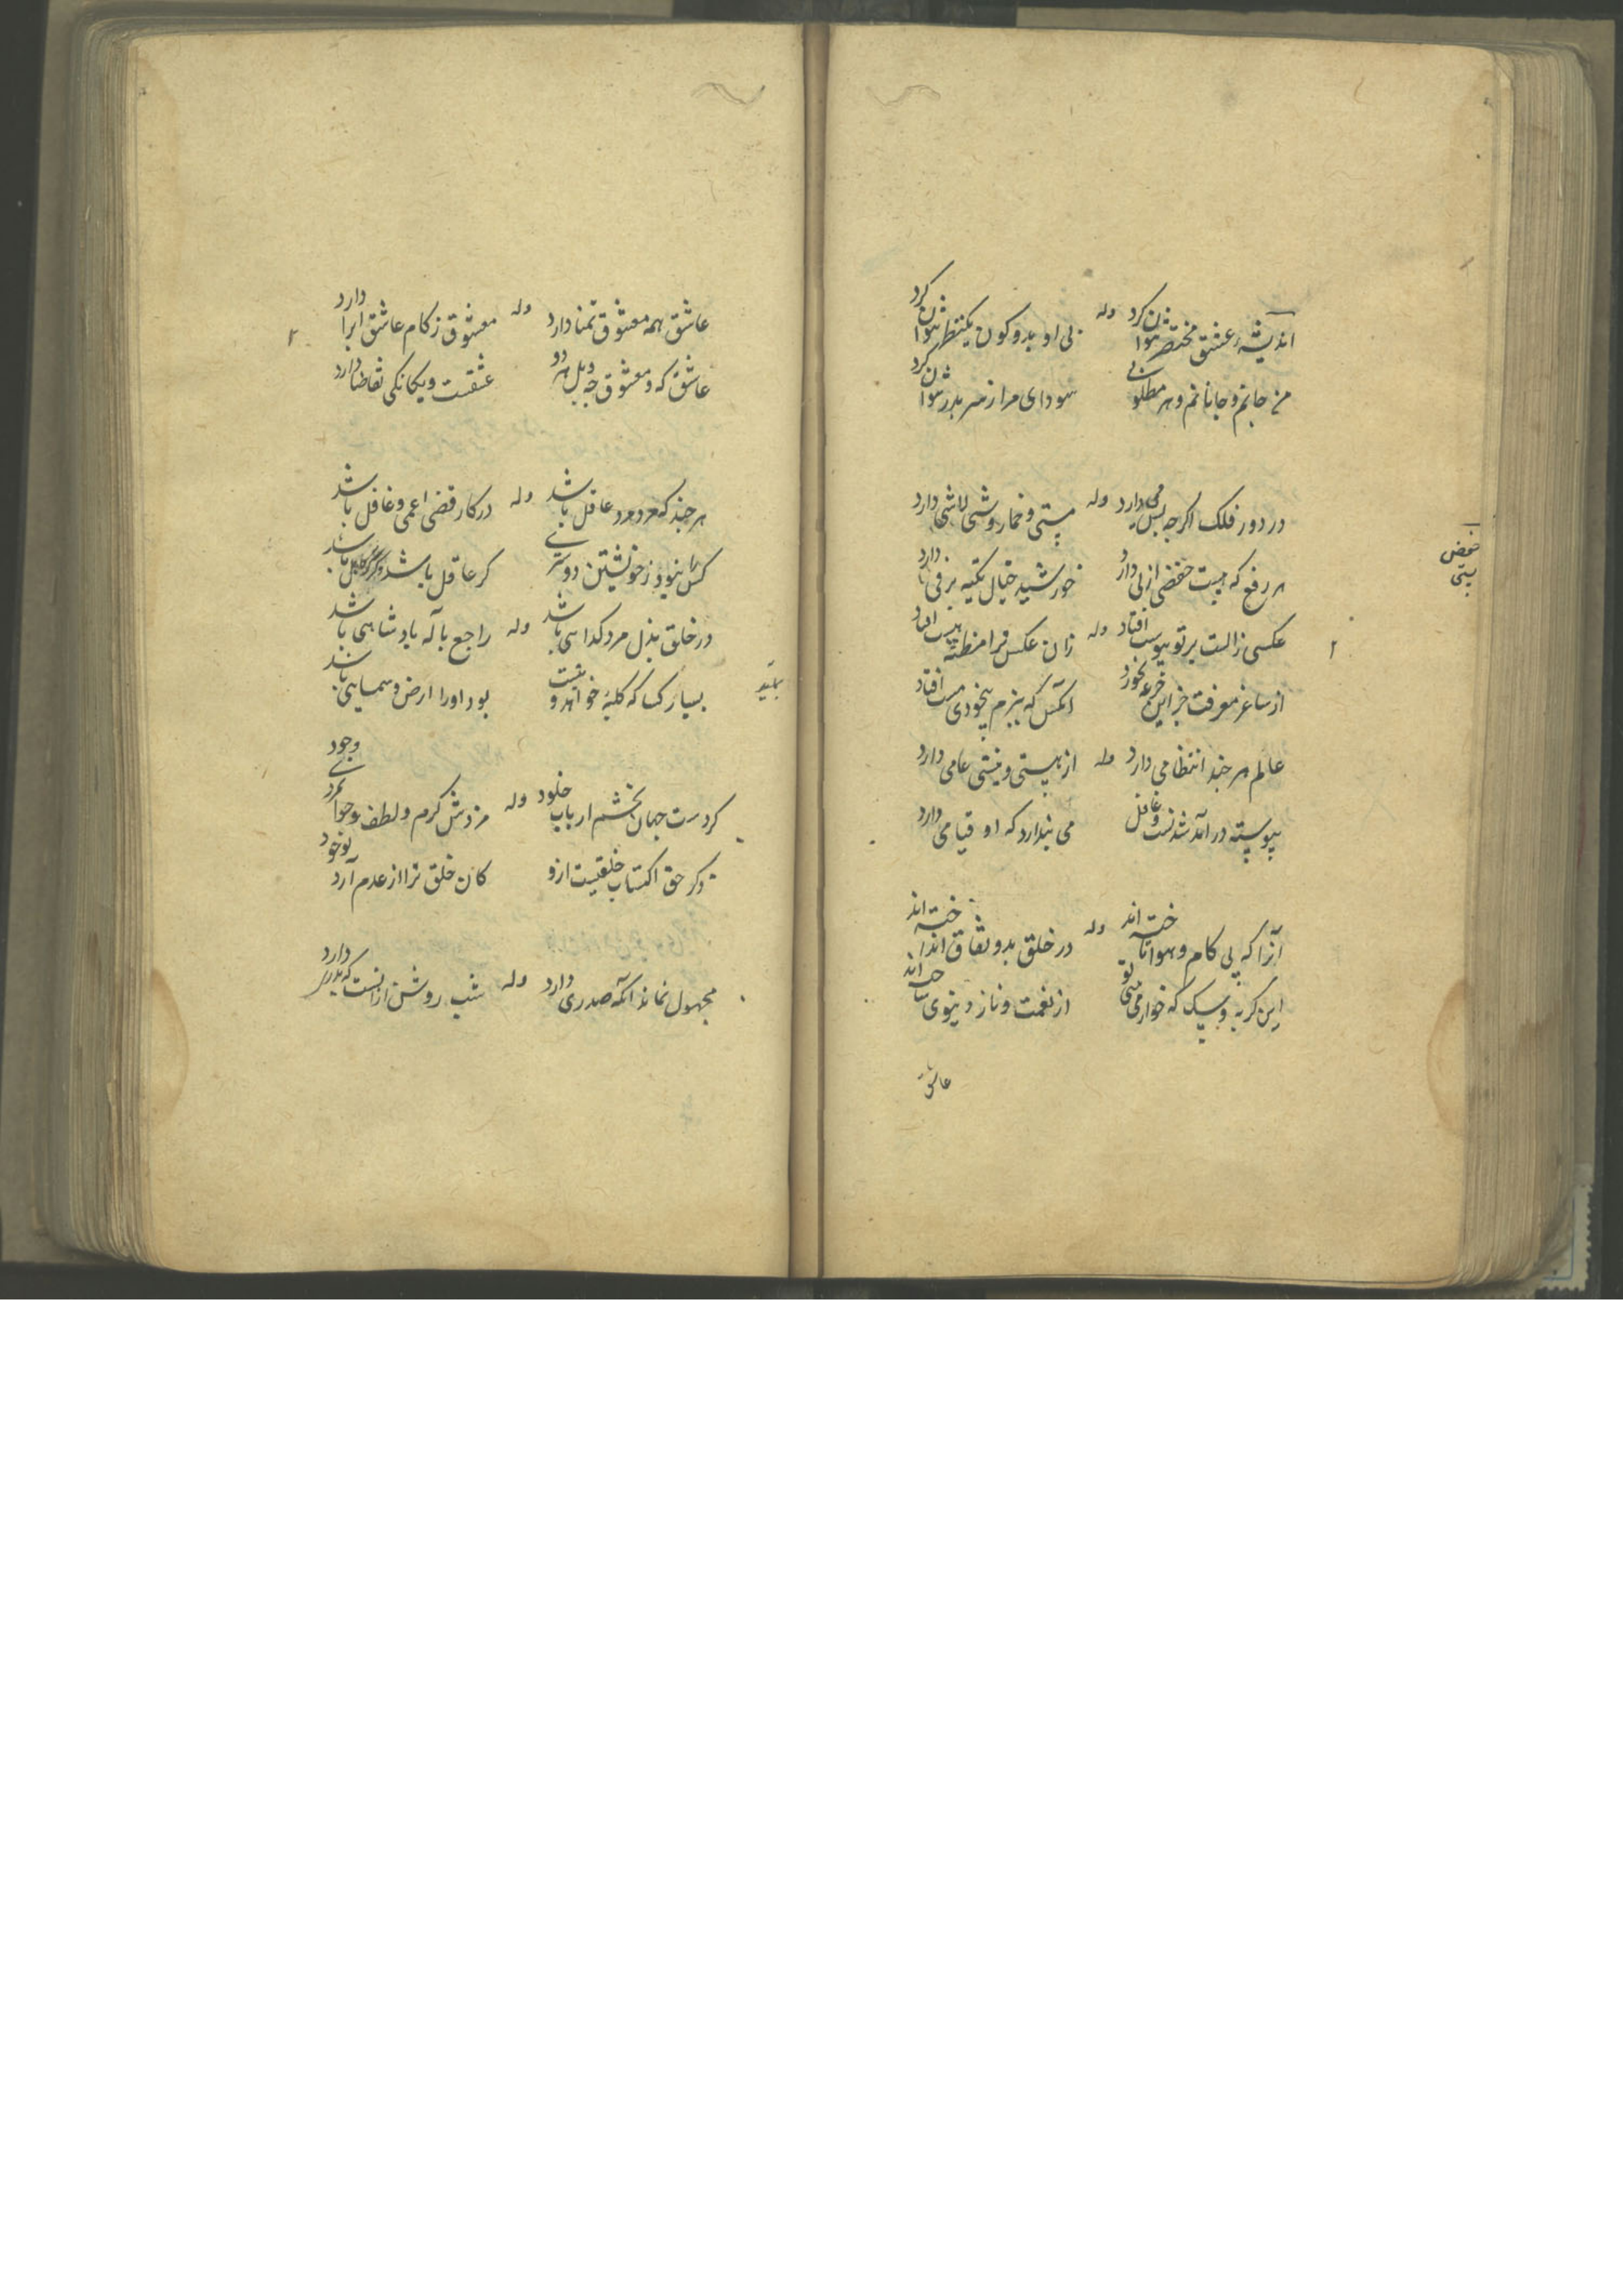 اندیشهٔ عشق مختصر نتوان کرد وله بی او بدو کون یکنظر نتوان کرد
من جانم و جانانم و هر مطلوبی سودای مرا ز سر بدر نتوان کرد
در دور فلک اکرچه بس می دارد وله مستی و خمار و شی لاشی دارد
هر رفع که هست خفضی از پی دارد خورشید خیال تکیه بر فی دارد
عکسی ز الست بر تو پیوست افتاد وله زان عکس ترا منطقه پست افتاد
از ساغر معرفت جز این جرعه نخورد آنکس که ببزم بیخودی مست افتاد
عالم هر چند انتظامی دارد وله از هستی و نیستی عامی دارد
پیوسته در آمد شدنست و غافل می پندارد که او قیامی دارد
آنرا که پی کام و هوا تاخته اند وله در خلق بدو نفاق انداخته اند
این کربه و سک که خوار می از نعمت و ناز دنیوی ساخته اند
عاشق
عاشق همه معشوق تمنا دارد وله معشوق ز کام عاشق ابرا دارد
عاشق که و معشوق چه و بل هر دو عشقست و یکانکی تقاضا دارد
هر چند که مرد مرد عاقل باشد وله در کار قضی اعمی و غافل باشد
کس را نبود ز خویشتن دوستری کر عاقل باشد و کر باشد
در خلق بذل مرد کدایی باشد وله راجع بآله پادشاهی باشد
بسیار کسا که کلبهٔ خواهد و نیست بود اورا ارض و سمایی باشد
کر دست جهان بخشم ارباب خلود وله مزدش کرم و لطف و جوانمردی وجود
ذکر حق اکتساب خلقیست ازو کان خلق ترا از عدم آرد بوجود
مجهول نماند آنکه صدری دارد وله شب روشن از آنست که بدری دارد